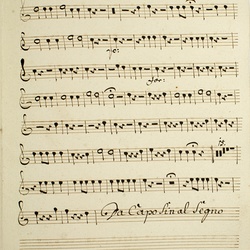 fo:
Da Capo Sin al Segno